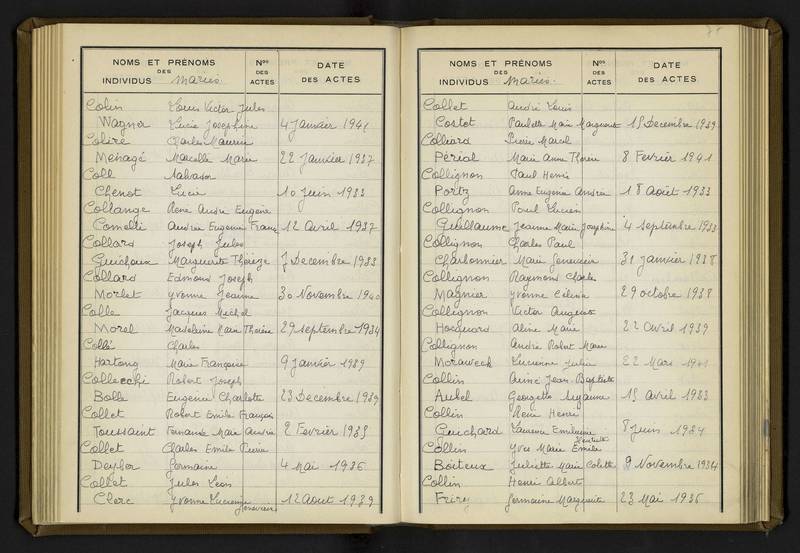 NOMS ET PRÉNOMS
DES
INDIVIDUS Mariés.
Nos
DES
ACTES
DATE
DES ACTES
Colin Louis Victor Jules
Wagner Lucie Joséphine 4 Janvier 1941
Charles Maurice
Menagé Marcelle Marie 22 Janvier 1937
Coll
Chenot Lucie 10 Juin 1933
Collange René André Eugène
Cometti Andrée Eugénie 12 Avril 1937
Collard Joseph Jules
Guichoux Marguerite Thérèze 7 Decembre 1933
Collard Edmond Joseph
Morlet Yvonne Jeanne 30 Novembre 1940
Colle Jacques Michel
Morel Madeleine Marie Thérèse 29 septembre 1934
Collé Charles
Hartong Marie Françoise 9 Janvier 1939
Collecchi Robert Joseph
Bolle Eugénie Charlotte 23 Decembre 1939
Collet Robert Emile François
Toussaint Fernande Marie Andrée 2 Fevrier 1935
Collet Charles Emile Pierre
Deyber Germaine 4 Mai 1936
Collet Jules Léon
Clerc Yvonne Lucienne 12 Aout 1939
Geneviève
NOMS ET PRÉNOMS
DES
INDIVIDUS Mariés.
Nos
DES
ACTES
DATE
DES ACTES
Collet André Louis
Costet Paulette Marie Marguerite 15 Decembre 1939
Colliard Pierre Marcel
Périal Marie Anne Thérèse 8 Fevrier 1941
Collignon Paul Henri
Portz Anne Eugénie Andrée 18 Août 1933
Collignon Paul Lucien
Guillaume Jeanne Marie Joséphine 4 septembre 1933
Collignon Charles Paul
Charbonnier Marie Geneviève 31 Janvier 1938
Collignon Raymond Charles
Magnier Yvonne Célina 29 octobre 1938
Collignon Victor Auguste
Hocquard Aline Marie 22 Avril 1939
Collignon André Robert Marie
Moraweck Lucienne Julie 22 Mars 1941
Collin Aimé Jean-Baptiste
Aubel Georgette Suzanne 15 Avril 1933
Collin René Henri
Guichard Laurence Emilienne 8 Juin 1934
Collin Yves Marie Emile
Boiteux Juliette Marie Colette 9 Novembre 1934
Collin Henri Albert
Friry Germaine Marguerite 23 Mai 1936